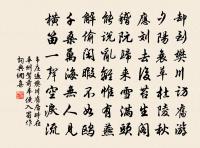 却到樊川訪舊游
夕陽衰草杜陵秋
應劉去後苔生閣
嵇阮歸來雪滿頭
能說亂離惟有燕
解偷閒暇不如鷗
千桑萬海無人見
橫笛一聲空淚流
韋莊過樊川舊居時在
華州駕前奉使入蜀作
詞典網集